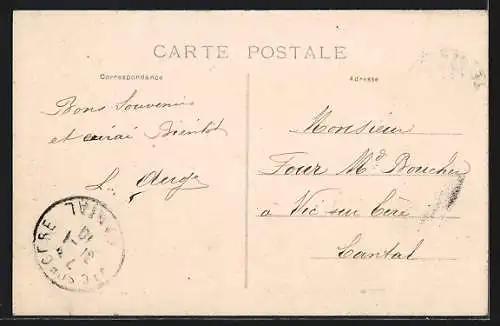 CARTE POSTALE
Correspondance
Adresse
Bons Souvenirs
et Bientot
L. Auge
Monsieur
Four Md Boucher
à Vic sur Cère
Cantal
VIC-SUR-CERE
CANTAL